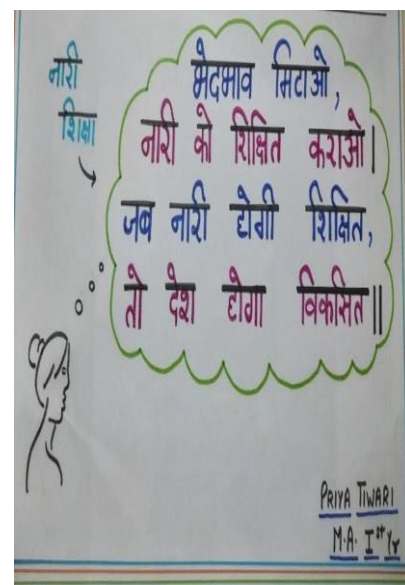 नारी
शिक्षा
भेदभाव मिटाओ,
नारी को शिक्षित कराओ|
जब नारी होगी शिक्षित,
तो देश होगा विकसित||
PRIYA TIWARI
M.A. Ist Yr